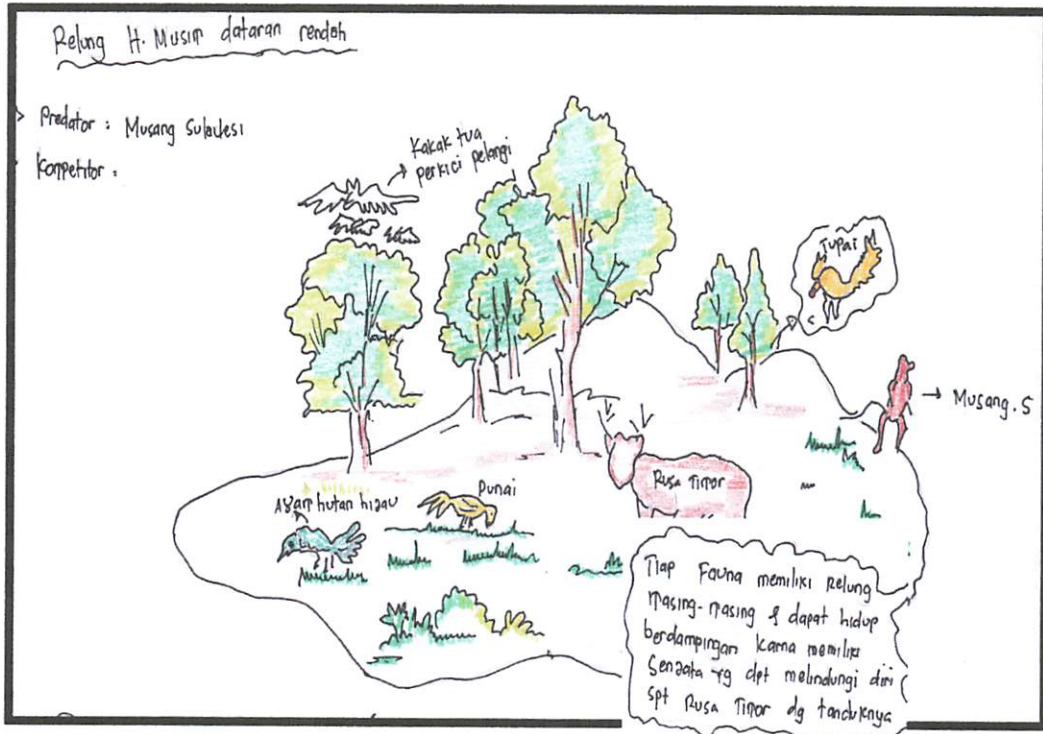 Relung H. Musim dataran rendah
Predator : Musang Sulawesi
Kompetitor :
Kakak tua
perkici pelangi
Tupai
Musang. S
Rusa Timor
Punai
Ayam hutan hijau
Tiap Fauna memiliki Relung
masing-masing & dapat hidup
berdampingan karna memiliki
Senjata yg dpt melindungi diri
spt Rusa Timor dg tanduknya